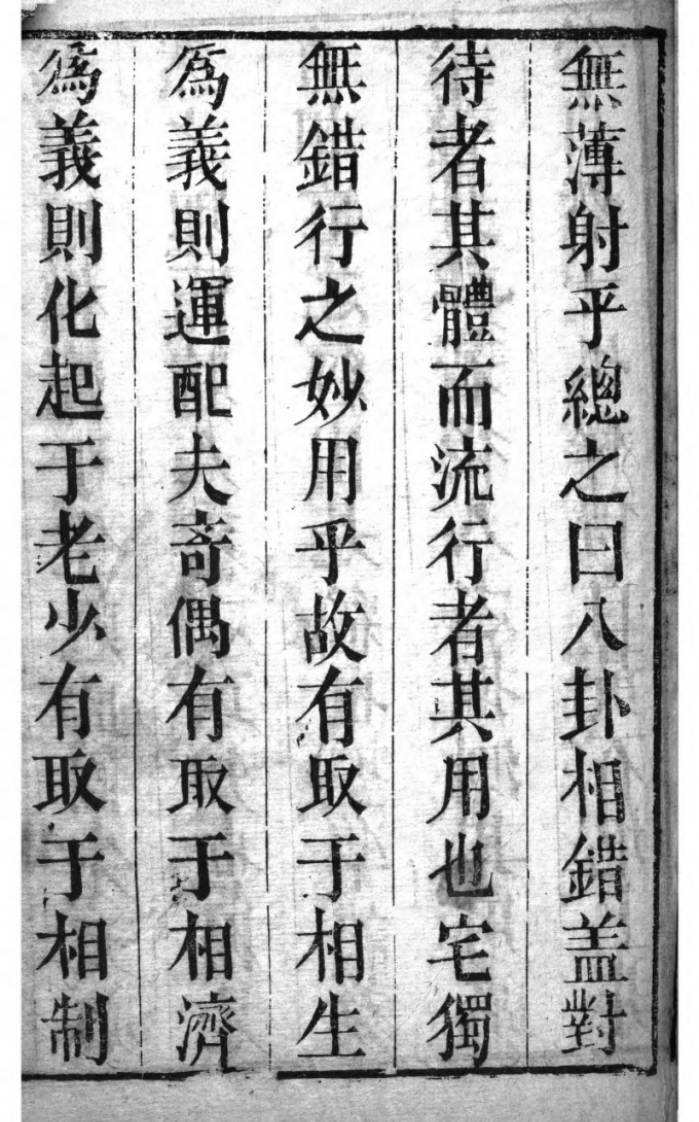 無薄射乎總之曰八卦相錯盖對
待者其體而流行者其用也宅獨
無錯行之妙用乎故有取于相生
爲義則運配夫奇偶有取于相濟
爲義則化起于老少有取于相制